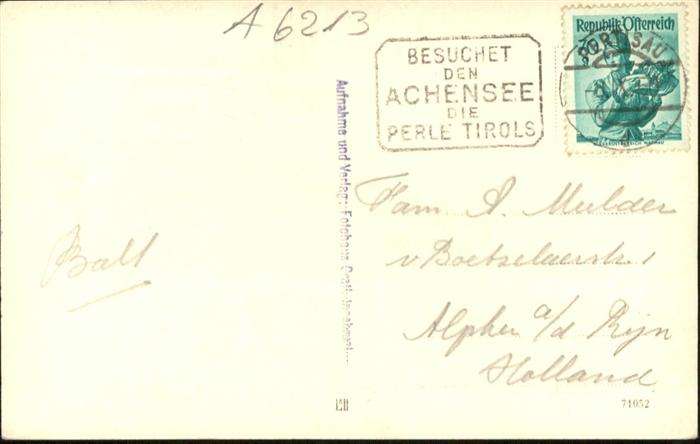 A 6213
BESUCHET
DEN
ACHENSEE
DIE
PERLE TIROLS
Republik Österreich
Aufnahme und Verlag: Fotohaus
Fam. A. Mulder
v Boetzelaerstr 1
Alphen a/d Rijn
Holland
Balt
71052